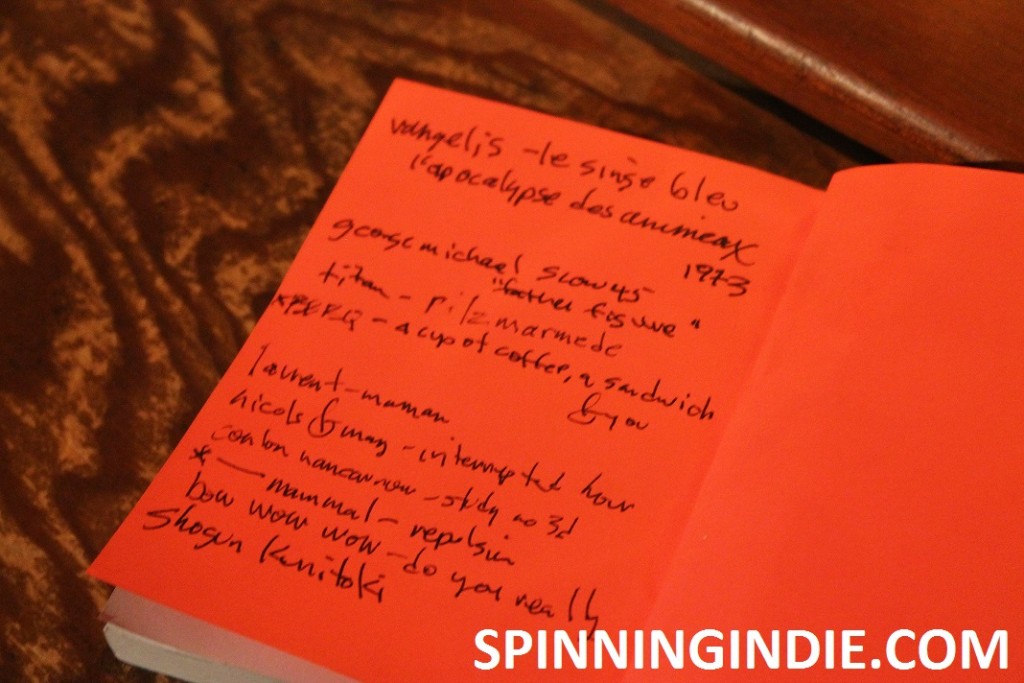 vangelis - le singe bleu
l'apocalypse des animeax
1973
george michael slow 45
"father figure"
titan - pilzmarmede
- a cup of coffee, a sandwich
& you
laurent - maman
nicols & may - interrupted hour
conlon nancarrow - study no 3d
* — mammal - repulsion
bow wow wow - do you really
Shogun Kunitoki
SPINNINGINDIE.COM